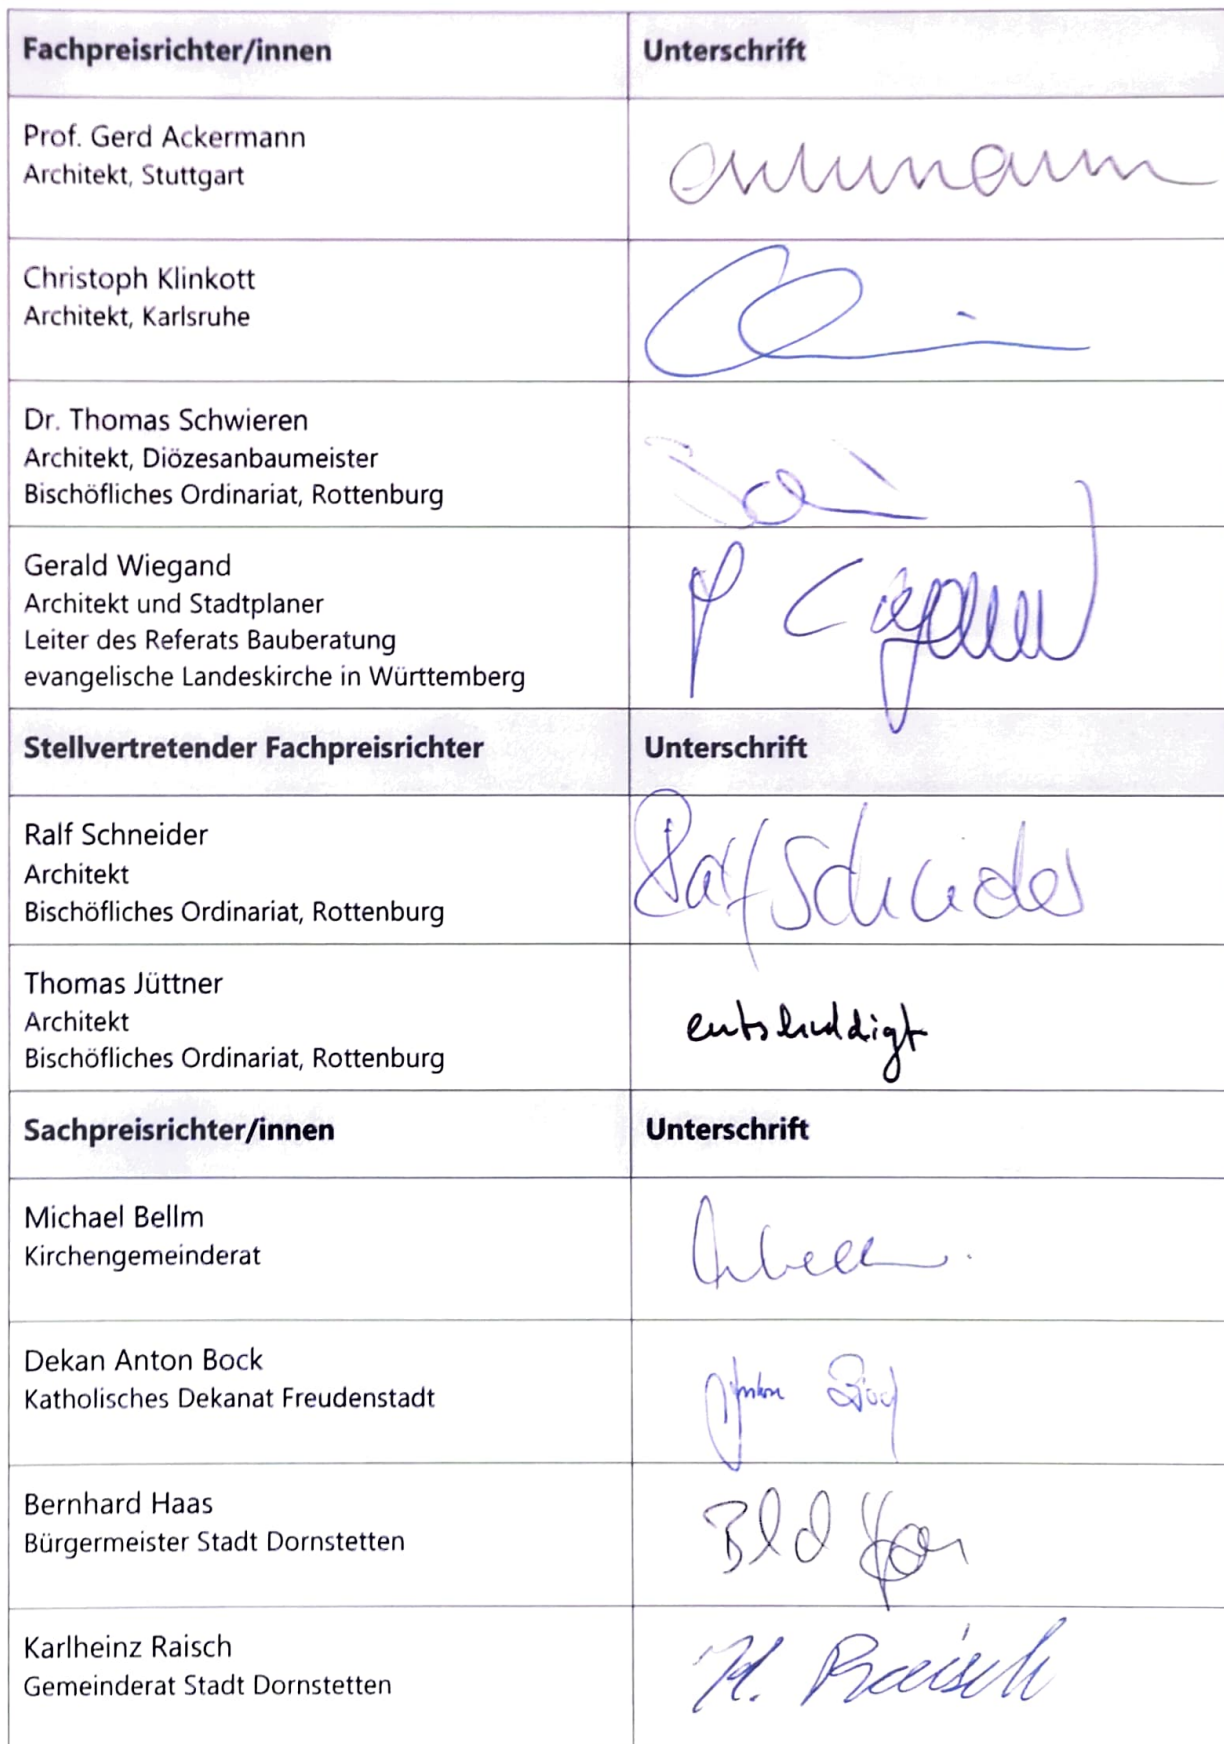 Fachpreisrichter/innen Unterschrift
Prof. Gerd Ackermann
Architekt, Stuttgart
Christoph Klinkott
Architekt, Karlsruhe
Dr. Thomas Schwieren
Architekt, Diözesanbaumeister
Bischöfliches Ordinariat, Rottenburg
Gerald Wiegand
Architekt und Stadtplaner
Leiter des Referats Bauberatung
evangelische Landeskirche in Württemberg
Stellvertretender Fachpreisrichter Unterschrift
Ralf Schneider
Architekt
Ralf Schneider
Bischöfliches Ordinariat, Rottenburg
Thomas Jüttner
Architekt
entschuldigt
Bischöfliches Ordinariat, Rottenburg
Sachpreisrichter/innen Unterschrift
Michael Bellm
Kirchengemeinderat
Dekan Anton Bock
Katholisches Dekanat Freudenstadt
Anton Bock
Bernhard Haas
Bürgermeister Stadt Dornstetten
Karlheinz Raisch
Gemeinderat Stadt Dornstetten
K. Raisch